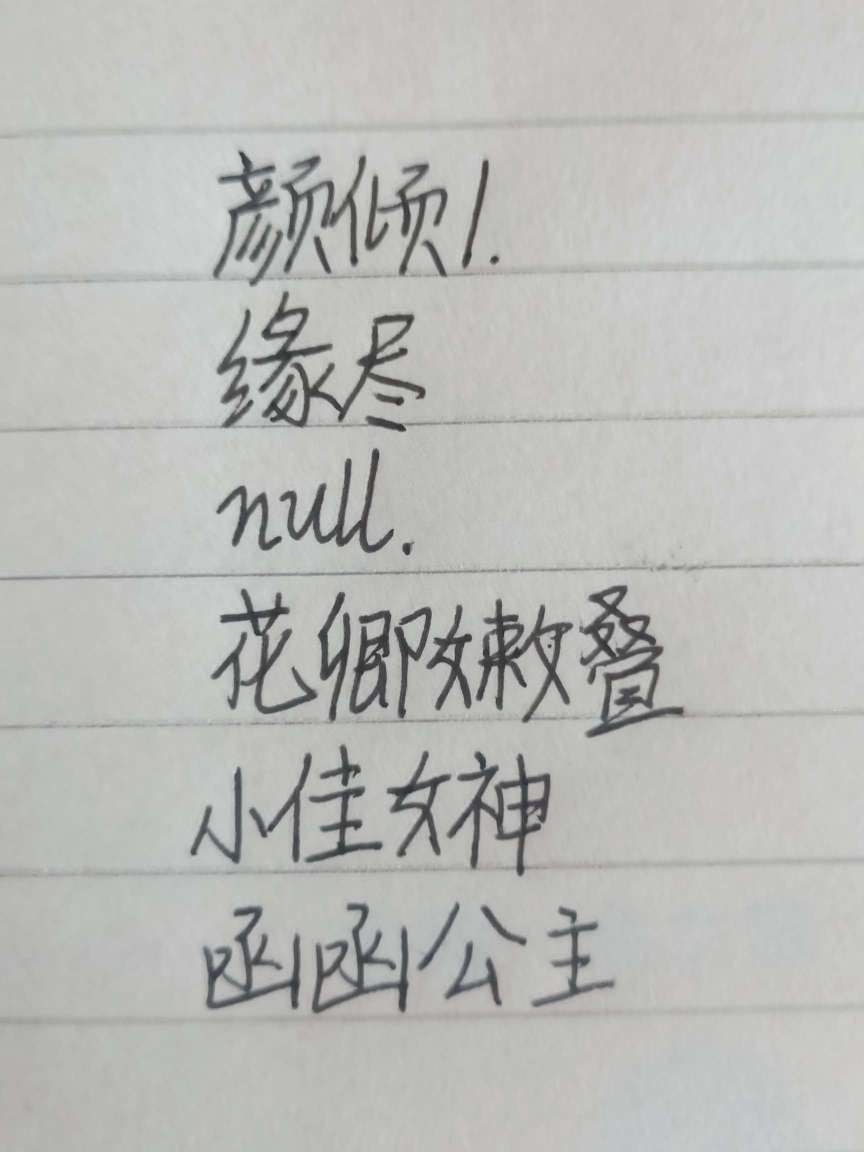 颜倾1.
缘尽
null.
花卿嫩叠
小佳女神
函函公主